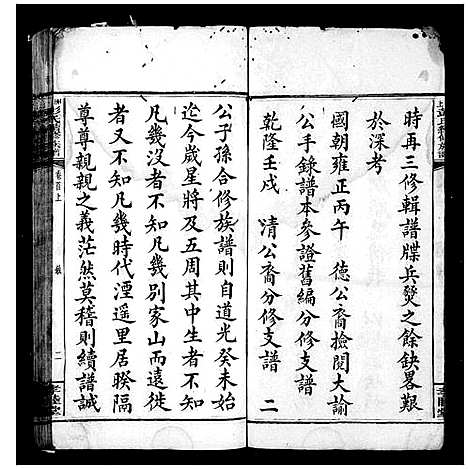 時再三修輯譜牒兵燹之餘缺畧艱
於深考
國朝雍正丙午 德公裔撿閱大諭
公手錄譜本參證舊編分修支譜
乾隆壬戌 清公裔分修支譜 二
公子孫合修族譜則自道光癸未始
迄今歲星將及五周其中生者不知
凡幾歿者不知凡幾別家山而遠徙
者又不知凡幾時代湮遥里居暌隔
尊尊親親之義茫然莫稽則續譜誠
卷首上
二